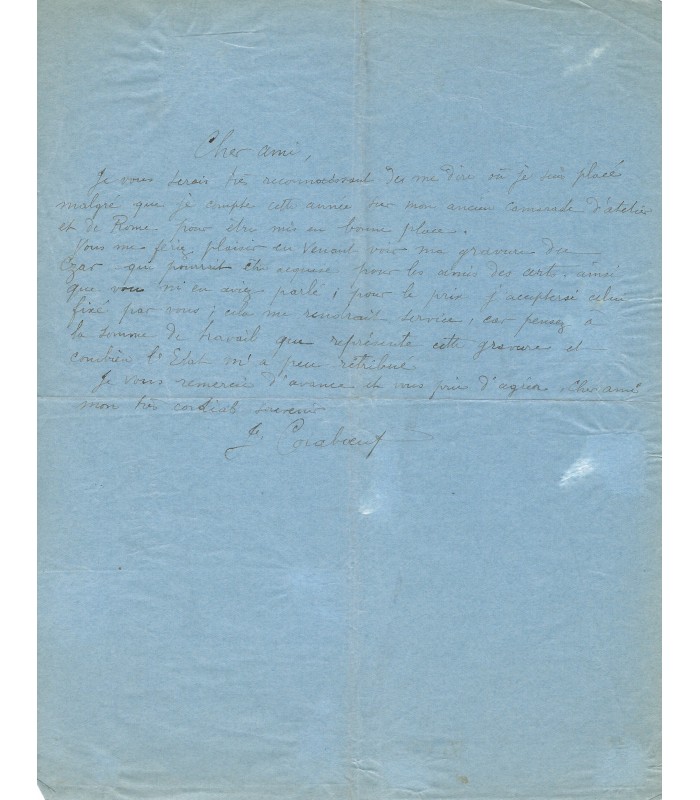 Cher ami,
Je vous serais très reconnaissant des me dire où je suis placé
malgré que je compte cette année sur mon ancien camarade d'atelier
et de Rome pour être mis en bonne place.
Vous me feriez plaisir en venant voir ma gravure du
Czar qui pourrait être acquise pour les amis des arts, ainsi
que vous m'en aviez parlé ; pour le prix j'accepterai celui
fixé par vous ; cela me rendrait service, car pensez à
la somme de travail que représente cette gravure et
combien l'Etat m'a peu rétribué
Je vous remercie d'avance et vous prie d'agréer, cher ami
mon très cordial souvenir
J. Coraboeuf